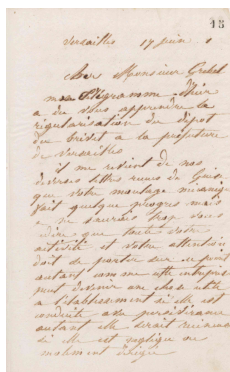 15
Versailles 17 juin
Cher Monsieur Grebel
mon télégramme d'hier
a dû vous apprendre la
régularisation du dépôt
du brevet à la préfecture
de Versailles
il me revient de nos
diverses lettres reçues de Guise
que votre moulage mécanique
fait quelque progrès mais
je ne saurais trop vous
dire que toute votre
activité et votre attention
doit se porter sur ce point
autant comme cette entreprise
peut devenir une chose utile
à l'établissement si elle est
conduite avec persévérance
autant elle serait
si elle est négligée ou
malement dirigée